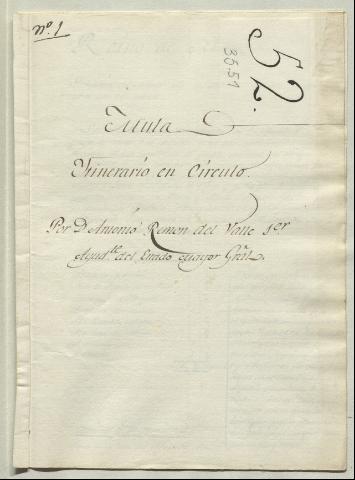 nº. 1
52.
3551
Mula
Itinerario en Circulo.
Por D. Antonio Remon del Valle 1er
Ayud.te del Estado mayor Gral.